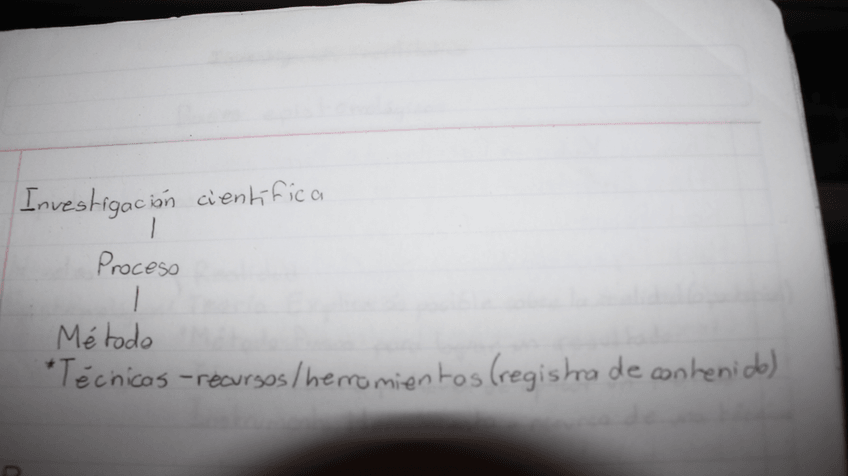 Investigación científica
|
Proceso
|
Método
*Técnicas - recursos/herramientos (registra de contenido)